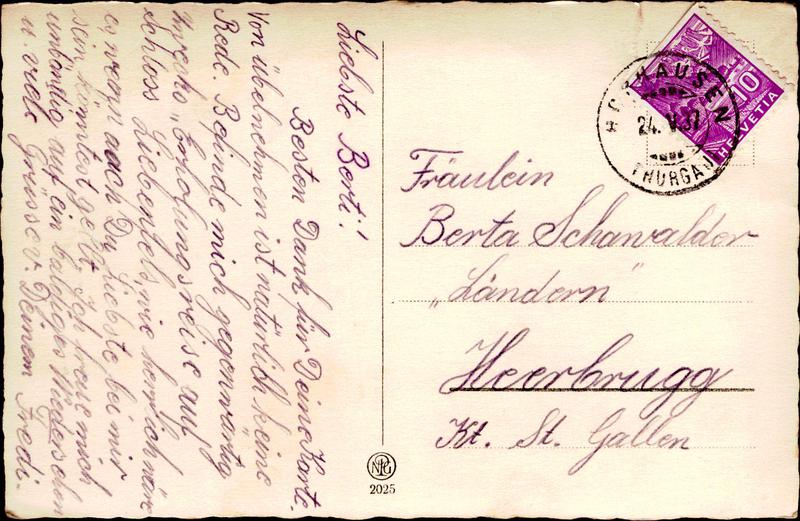 Liebste Berti!
Besten Dank für Deine Karte.
Von übelnehmen ist natürlich keine
Rede. Befinde mich gegenwärtig
zwecks "Erholungsreise" auf
Schloss Liebenfels, wie herrlich wäre
es, wenn auch Du Liebste bei mir
sein könntest gelt. Ich freue mich
unbändig auf ein baldiges Wiedersehen
u. viele Grüsse v. Deinem Fredi.
HOMHAUSEN
24. V. 37
THURGAU
10
HELVETIA
Fräulein
Berta Schawalder
"Ländern"
Heerbrugg
Kt. St. Gallen
2025